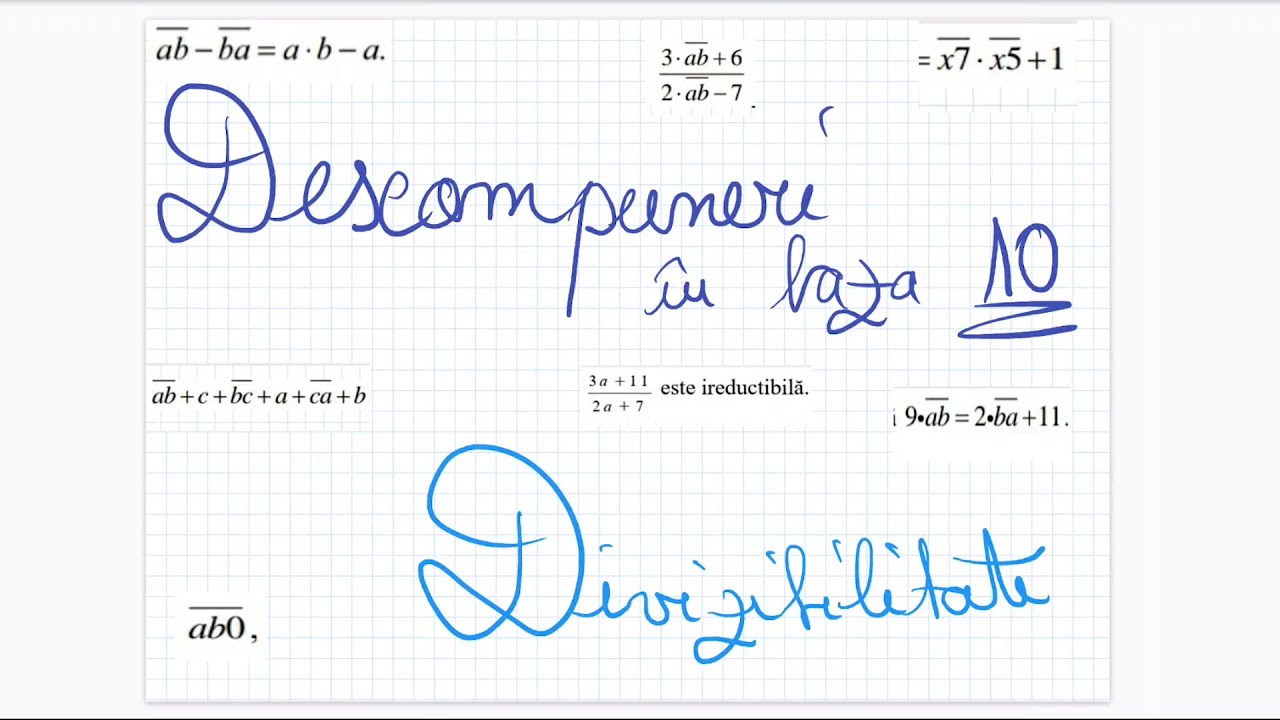 a̅b̅ − b̅a̅ = a · b − a.
3·a̅b̅ + 6
2·a̅b̅ − 7 .
= x̅7̅ · x̅5̅ + 1
Descompuneri
în baza 10
a̅b̅ + c + b̅c̅ + a + c̅a̅ + b
3a + 11
2a + 7
este ireductibilă.
9•a̅b̅ = 2•b̅a̅ + 11.
Divizibilitate
a̅b̅0̅ ,